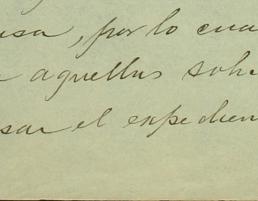 usa, por lo cua
a aquellas sobr
sar el expedien